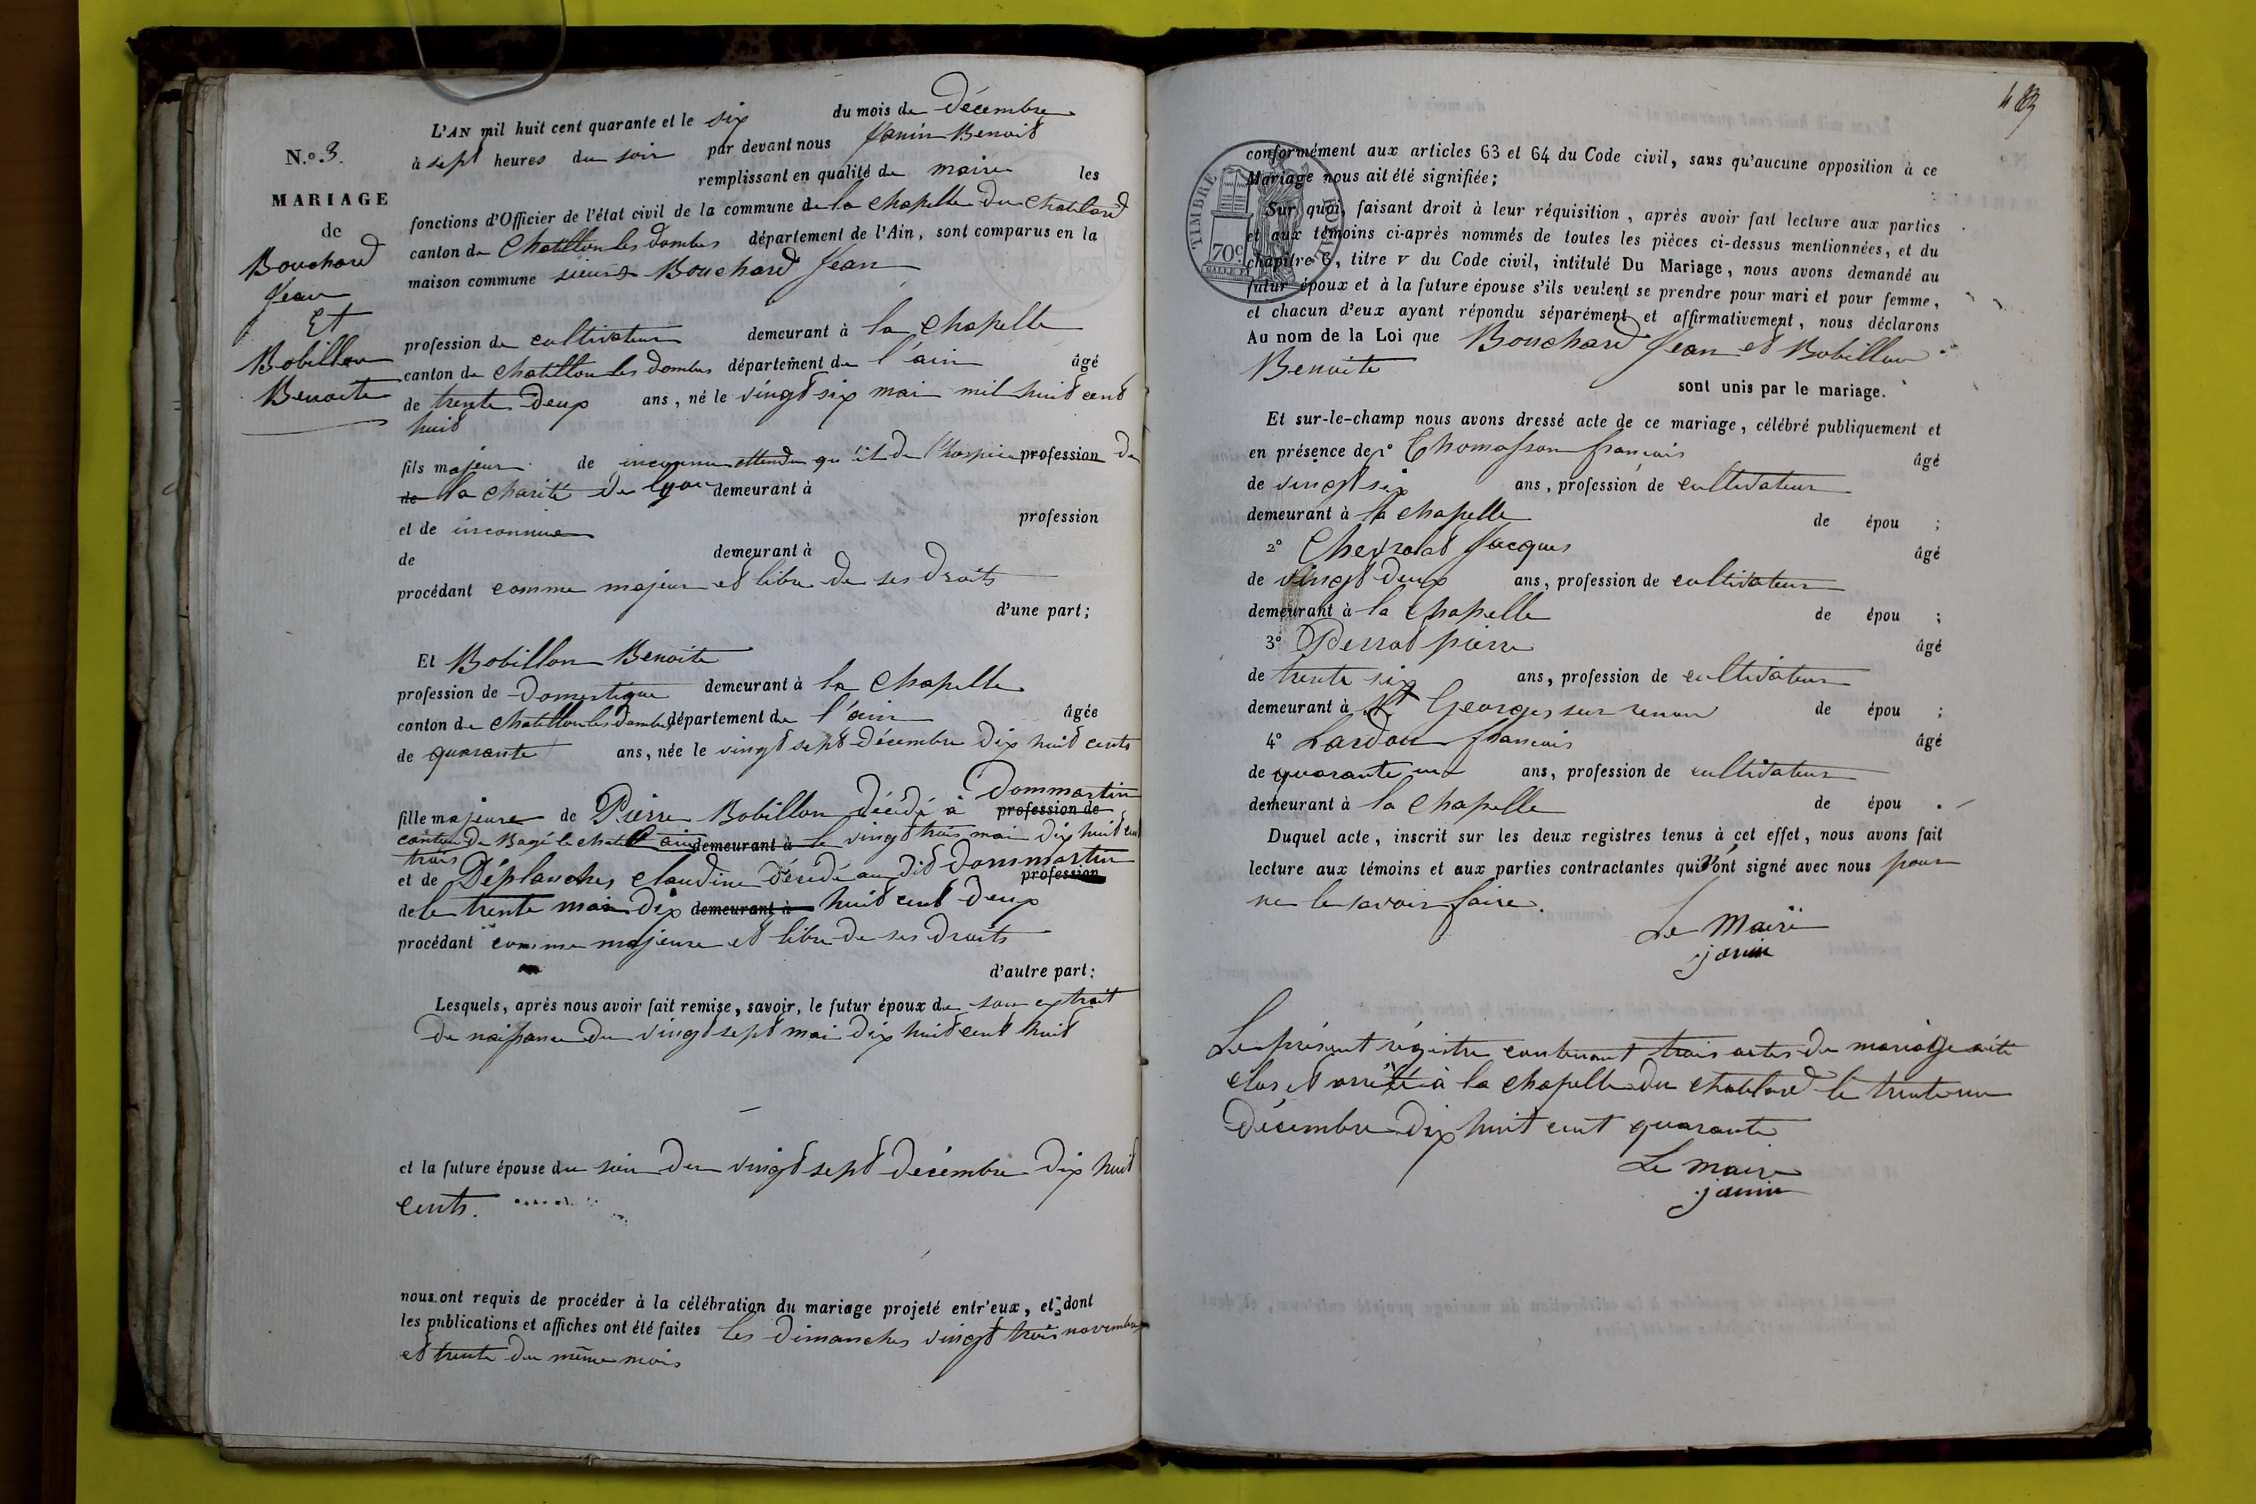 N.o 3.
MARIAGE
de
Bouchard
Jean
Et
Bobillon
Benoite
L'AN mil huit cent quarante et le six du mois de Décembre
à sept heures du soir par devant nous Janin Benoit
remplissant en qualité de maire les
fonctions d'Officier de l'état civil de la commune de la Chapelle du Chatelard
canton de Chatillon les Dombes département de l'Ain, sont comparus en la
maison commune sieurs Bouchard Jean
profession de cultivateur demeurant à la Chapelle
canton de Chatillon les Dombes département de l'ain âgé
de trente deux ans, né le vingt six mai mil huit cent
huit
fils majeur de inconnu attendu qu'il de l'hospice profession de
de la charité de Lyon demeurant à
et de inconnue profession
de demeurant à
procédant comme majeur et libre de ses droits
d'une part;
Et Bobillon Benoite
profession de Domestique demeurant à la Chapelle
canton de Chatillon les Dombes département de l'ain âgée
de quarante ans, née le vingt sept Décembre Dix huit cents
fille majeure de Pierre Bobillon décédé à Dommartin profession de
canton de Bagé le chatel ain demeurant à le vingt trois mai Dix huit cent
trois
et de Déplanches Claudine décédé au dit Dommartin profession
de le trente mai Dix demeurant à huit cent Deux
procédant comme majeure et libre de ses droits
d'autre part:
Lesquels, après nous avoir fait remise, savoir, le futur époux de son extrait
De naissance du vingt sept mai Dix huit cent huit
et la future épouse du sien du vingt sept décembre Dix huit
cents.
nous ont requis de procéder à la célébration du mariage projeté entr'eux, et dont
les publications et affiches ont été faites les dimanches vingt trois novembre
et trente du même mois
483
TIMBRE ROYAL
70c
conformément aux articles 63 et 64 du Code civil, sans qu'aucune opposition à ce
Mariage nous ait été signifiée;
Sur quoi, faisant droit à leur réquisition, après avoir fait lecture aux parties
et aux témoins ci-après nommés de toutes les pièces ci-dessus mentionnées, et du
chapitre 6, titre V du Code civil, intitulé Du Mariage, nous avons demandé au
futur époux et à la future épouse s'ils veulent se prendre pour mari et pour femme,
et chacun d'eux ayant répondu séparément et affirmativement, nous déclarons
Au nom de la Loi que Bouchard Jean et Bobillon
Benoite
sont unis par le mariage.
Et sur-le-champ nous avons dressé acte de ce mariage, célébré publiquement et
en présence de 1° Thomasson francois âgé
de vingt six ans, profession de cultivateur
demeurant à la chapelle de épou ;
2° Cheyrolat Jacques âgé
de vingt deux ans, profession de cultivateur
demeurant à la Chapelle de épou ;
3° Perrat pierre âgé
de trente six ans, profession de cultivateur
demeurant à St Georges sur renon de épou ;
4° Lardon francois âgé
de quarante un ans, profession de cultivateur
demeurant à la Chapelle de épou .
Duquel acte, inscrit sur les deux registres tenus à cet effet, nous avons fait
lecture aux témoins et aux parties contractantes qui n'ont signé avec nous pour
ne le savoir faire.
Le Maire
janin
Le présent régistre contenant trois actes de mariage a été
clos et arrêté à la chapelle du chatelard le trente un
Décembre Dix huit cent quarante
Le maire
janin